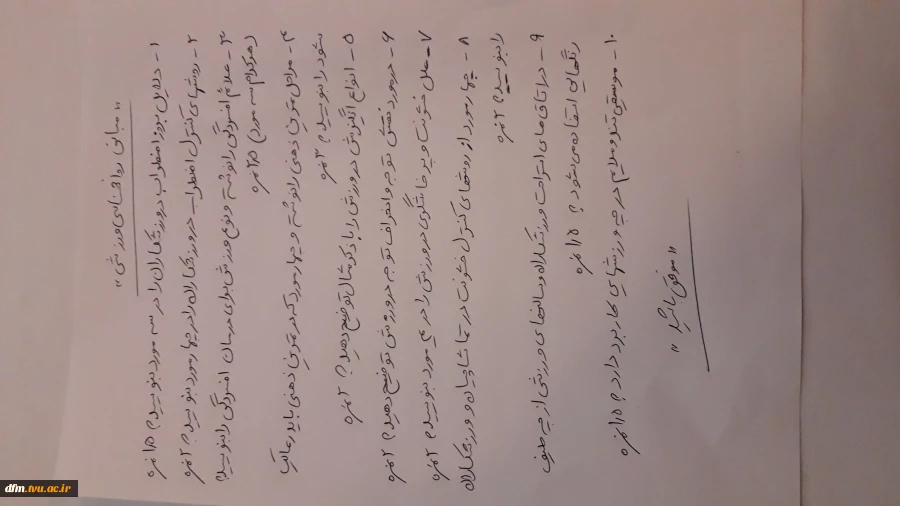 "مبانی روانشناسی ورزشی"
۱- دلایل بروز اضطراب در ورزشکاران را در سه مورد بنویسید؟ ۱/۵ نمره
۲- روشهای کنترل اضطراب در ورزشکاران را در چهار مورد بنویسید؟ ۲ نمره
۳- علائم افسردگی را نوشته و نوع ورزش برای درمان افسردگی را بنویسید؟
(هرکدام سه مورد) ۲/۵ نمره
۴- مراحل تمرین ذهنی را نوشته و چهار مورد که در تمرین ذهنی باید رعایت
شود را بنویسید؟ ۳ نمره
۵- انواع انگیزش در ورزش را با ذکر مثال توضیح دهید؟ ۲ نمره
۶- در مورد نقش توجه و انحراف توجه در ورزش توضیح دهید؟ ۲ نمره
۷- علل خشونت و پرخاشگری در ورزش را در ۴ مورد بنویسید؟ ۲ نمره
۸- چهار مورد از روشهای کنترل خشونت در تماشاچیان و ورزشکاران
را بنویسید؟ ۲ نمره
۹- در اتاق های استراحت ورزشکاران و سالنهای ورزشی از چه طیف
رنگهایی استفاده می شود؟ ۱/۵ نمره
۱۰- موسیقی تند و ملایم در چه ورزشهای کاربرد دارد؟ ۱/۵ نمره
"موفق باشید"
dfm.tvu.ac.ir